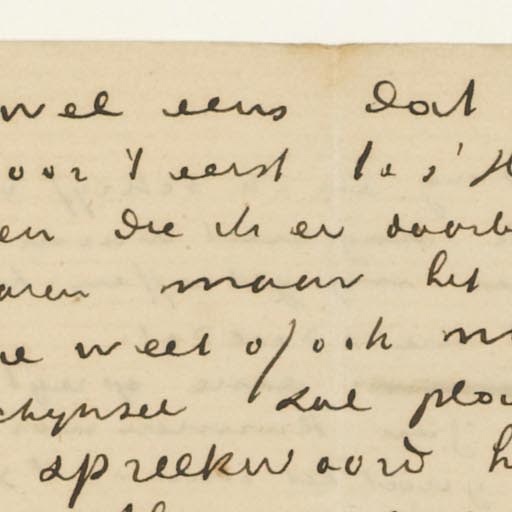 wel eens dat
oor 't eerst las'
en die ik er doorb
aren maar het
ie weet of ook m
chynsel zal plo
spreekwoord h